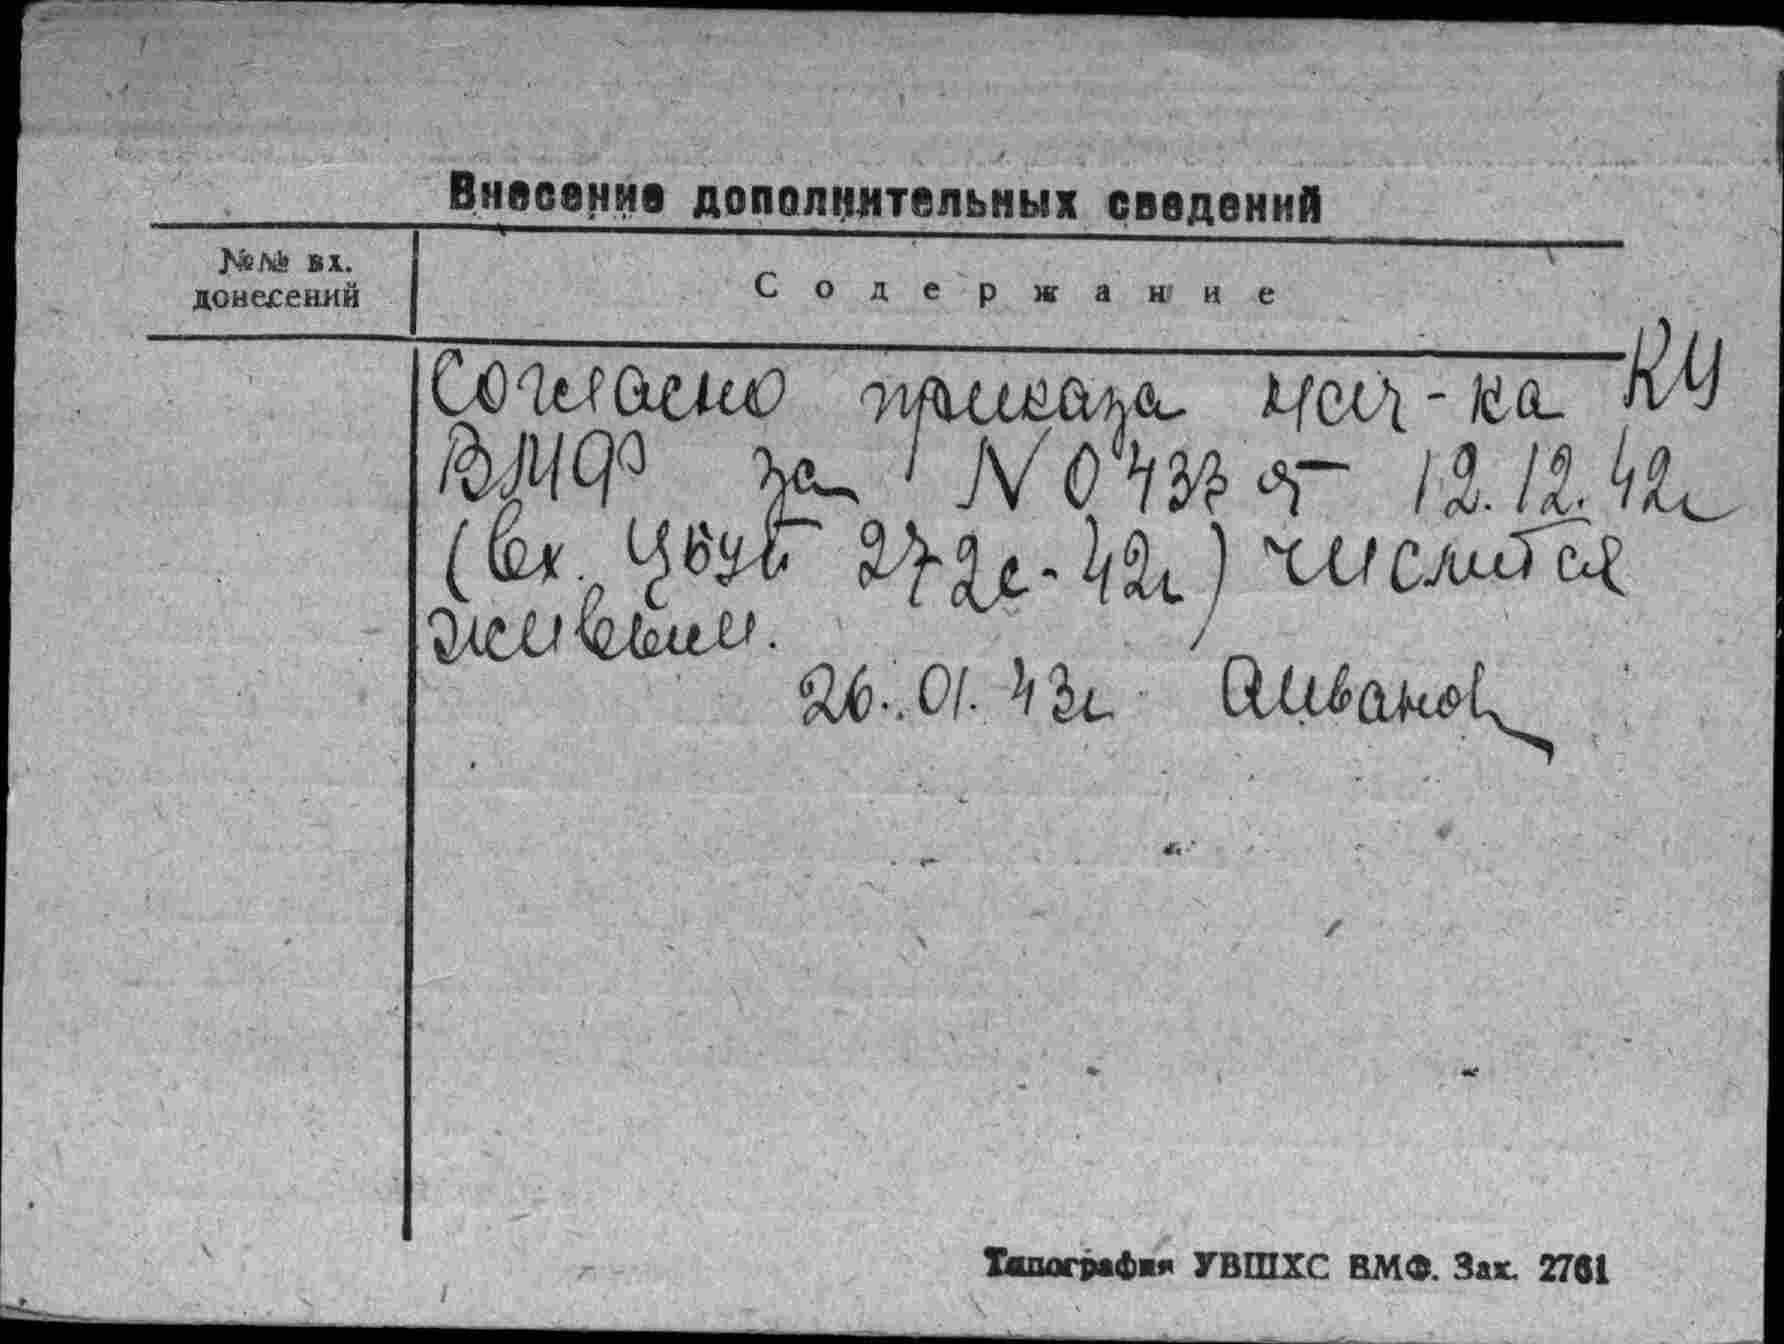 Внесение дополнительных сведений
№№ вх.
донесений
Содержание
Согласно приказа нач-ка КУ
ВМФ за N 0433 от 12.12.42г
(вх. 272с-42г) числится
живым.
26.01.43г Аиванов
Типография УВШХС ВМФ. Зак. 2761